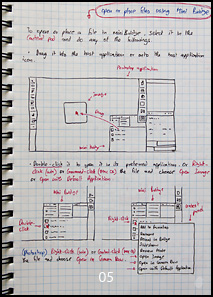 open or place files using Mini Bridge
To open or place a file in mini Bridge, select it in the
Content pod and do any of the followings.
• Drag it into the host application or onto the host application
icon.
• Double-click it to open it in its preferred application. Or Right-
click (win) or Command-click (mac os) the file and choose Open Image
or Open with Default Application.
mini Bridge
mini Bridge
Double-
click
Right-click
Open Image
Open in Camera Raw
Open with Default Application
05
(Photoshop) Right-click (win) or Control-click (mac os)
the file and choose Open in Camera Raw.